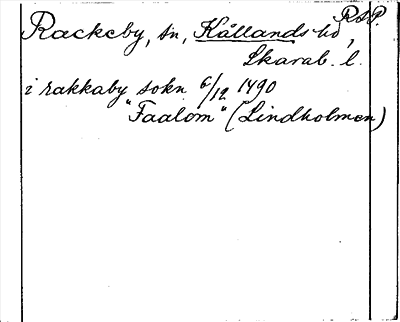 RSP.
Rackeby, sn, Kållands hd,
Skarab. l.
i rakkaby sokn 6/12 1490
"Faalom" (Lindholmen)